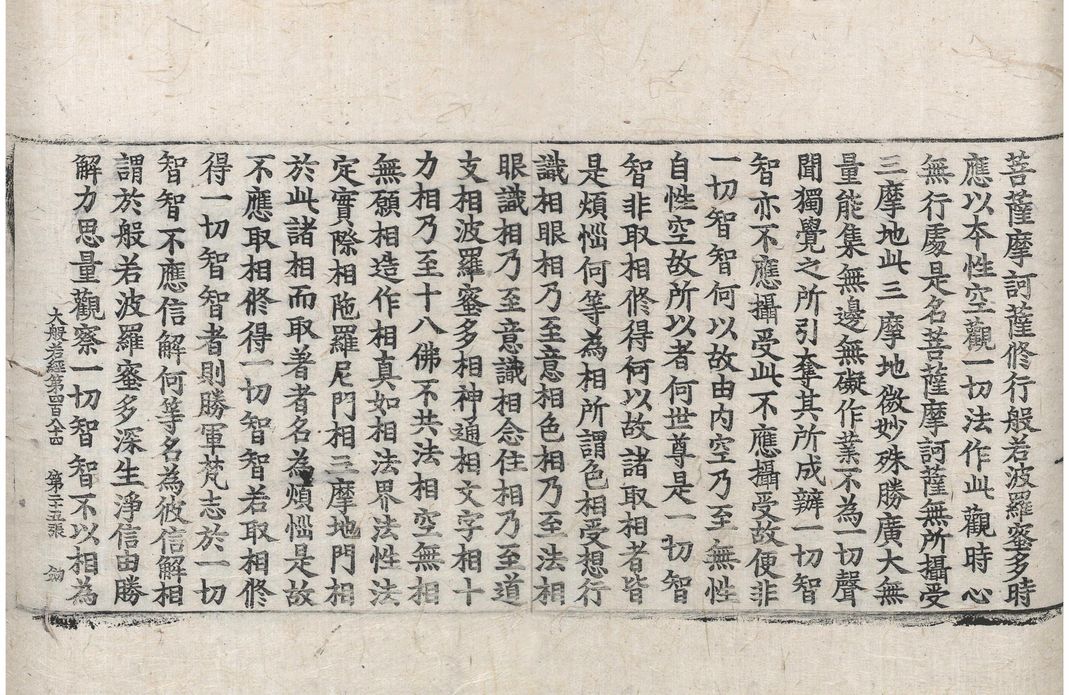 菩薩摩訶薩修行般若波羅蜜多時
應以本性空觀一切法作此觀時心
無行處是名菩薩摩訶薩無所攝受
三摩地此三摩地微妙殊勝廣大無
量能集無邊無礙作業不為一切聲
聞獨覺之所引奪其所成辦一切智
智亦不應攝受此不應攝受故便非
一切智智何以故由内空乃至無性
自性空故所以者何世尊是一切智
智非取相修得何以故諸取相者皆
是煩惱何等為相所謂色相受想行
識相眼相乃至意相色相乃至法相
眼識相乃至意識相念住相乃至道
支相波羅蜜多相神通相文字相十
力相乃至十八佛不共法相空無相
無願相造作相真如相法界法性法
定實際相陁羅尼門相三摩地門相
於此諸相而取著者名為煩惱是故
不應取相修得一切智智若取相修
得一切智智者則勝軍梵志於一切
智智不應信解何等名為彼信解相
謂於般若波羅蜜多深生淨信由勝
解力思量觀察一切智智不以相為
大般若經第四百八十四 第二十五張 劒